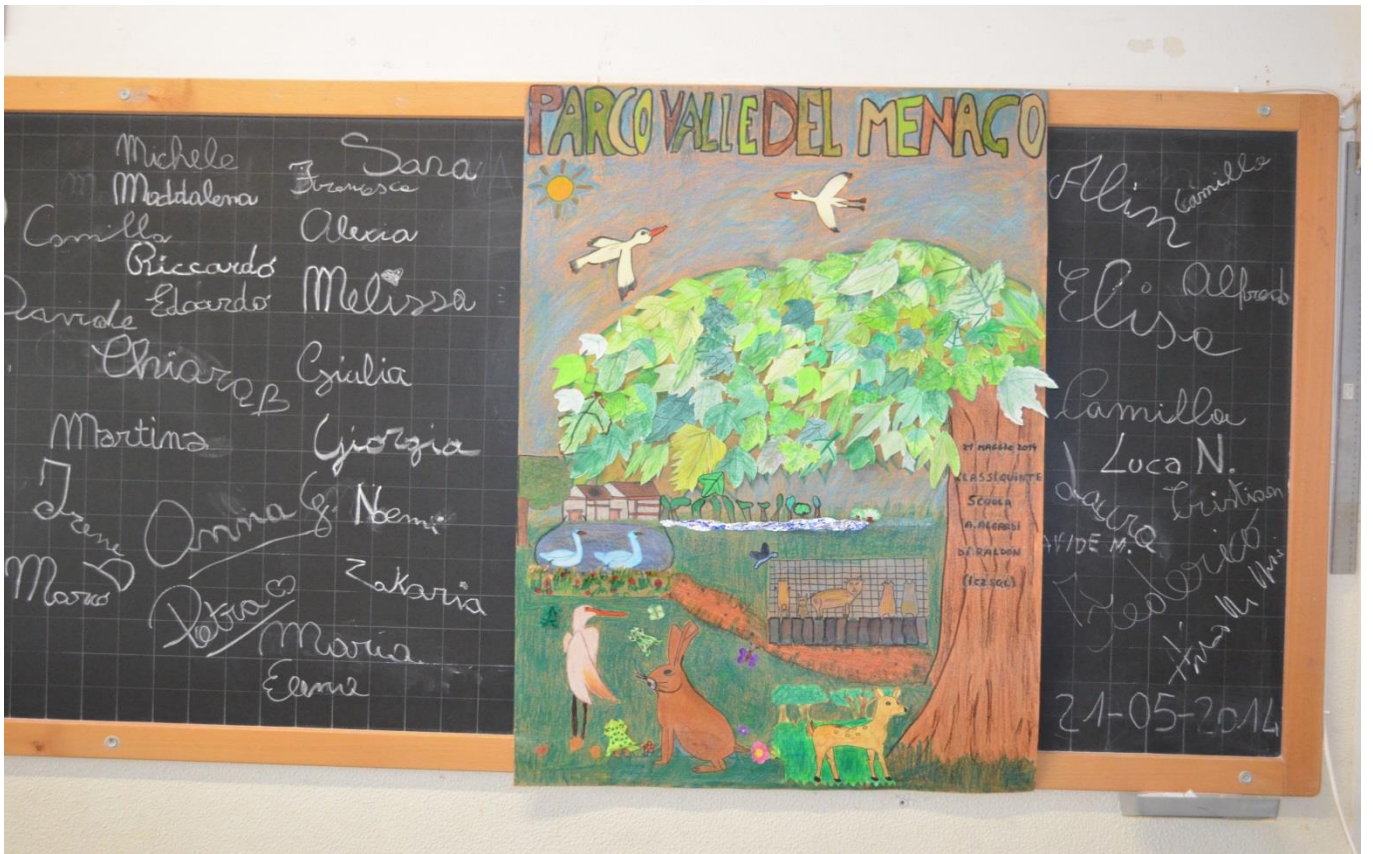 Michele
Maddalena
Camilla
Riccardo
Edoardo
Davide
Chiara
Martina
Irene
Anna G.
Marco
Petra
Sara
Francesca
Alexia
Melissa
Giulia
Giorgia
Noemi
Zakaria
Maria
Elena
PARCO VALLE DEL MENAGO
21 MAGGIO 2014
CLASSI QUINTE
SCUOLA
A. ALEARDI
DI RALDON
Alin
Camilla
Elisa
Alfredo
Camilla
Luca N.
Laura
Cristian
Federico
21-05-2014